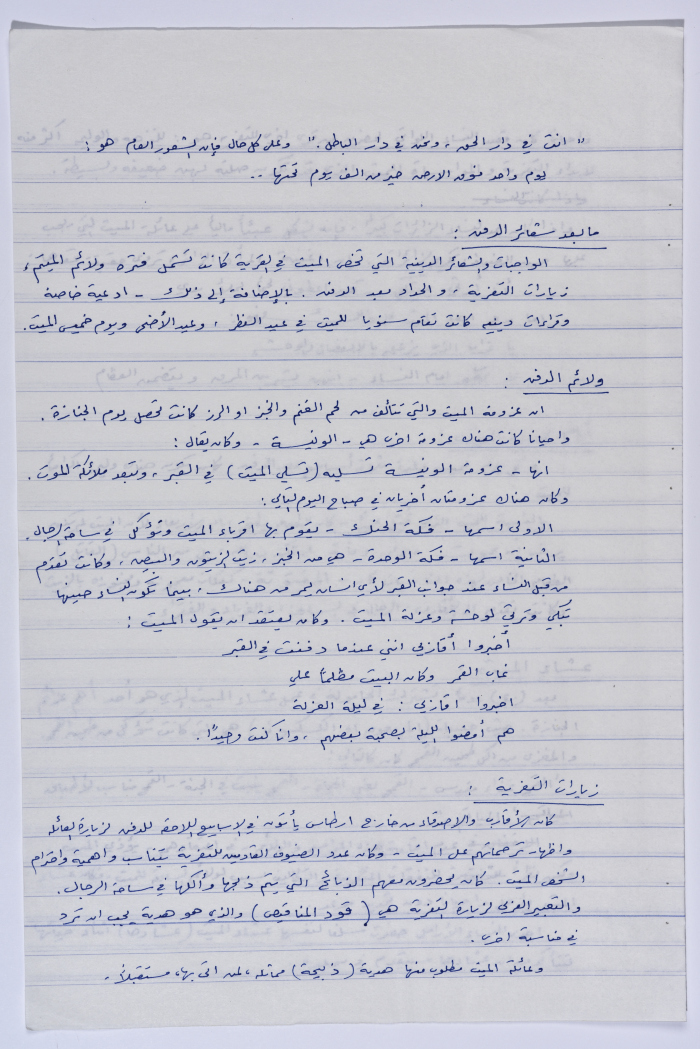 " انت في دار الحق ، ونحن في دار الباطل . " وعلى كل حال فإن الشعور العام هو :
يوم واحد فوق الارض خير من الف يوم تحتها ..
ما بعد شعائر الدفن :
الواجبات والشعائر الدينية التي تخص الميت في القرية كانت تشمل فترة ولائم الميتم ،
زيارات التعزية ، والحداد بعد الدفن . بالإضافة إلى ذلك - ادعية خاصة
وقراءات دينيه كانت تقام سنويا للميت في عيد الفطر ، وعيد الأضحى ويوم خميس الميت .
ولائم الدفن :
ان عزومة الميت والتي تتألف من لحم الغنم والخبز او الرز كانت تحصل يوم الجنازة .
واحيانا كانت هناك عزومة اخرى هي - الونيسة - وكان يقال :
انها - عزومة الونيسة تسليه ( تسلي الميت ) في القبر ، وتبعد ملائكة الموت .
وكان هناك عزومتان أخريان في صباح اليوم التالي :
الاولى اسمها - فكة الحنك - يقوم بها اقرباء الميت وتؤكل في ساحة الرجال .
الثانية اسمها - فكة الوحدة - هي من الخبز ، زيت الزيتون والبيض ، وكانت تقدم
من قبل النساء عند جوانب القبر لأي انسان يمر من هناك ، بينما تكون النساء حينها
تبكي وترثي لوحشة وعزلة الميت . وكان يعتقد ان يقول الميت :
أخبروا أقاربي انني عندما دفنت في القبر
غاب القمر وكان البيت مظلماً علي
اخبروا اقاربي : في ليلة العزلة
هم أمضوا الليلة بصحبة بعضهم ، وانا كنت وحيداً .
زيارات التعزية :
كان الأقارب والاصدقاء من خارج ارطاس يأتون في الاسابيع اللاحقة للدفن لزيارة العائلة
واظهار ترحماتهم على الميت - وكان عدد الضيوف القادمين للتعزية يتناسب واهمية واحترام
الشخص الميت . كان يحضرون معهم الذبائح التي يتم ذبحها وأكلها في ساحة الرجال .
والتعبير العربي لزيارة التعزية هي ( قود المناقيص ) والذي هو هدية يجب ان ترد
في مناسبة اخرى .
وعائلة الميت مطلوب منها هدية ( ذبيحة ) مماثلة ، لمن اتى بها ، مستقبلاً .